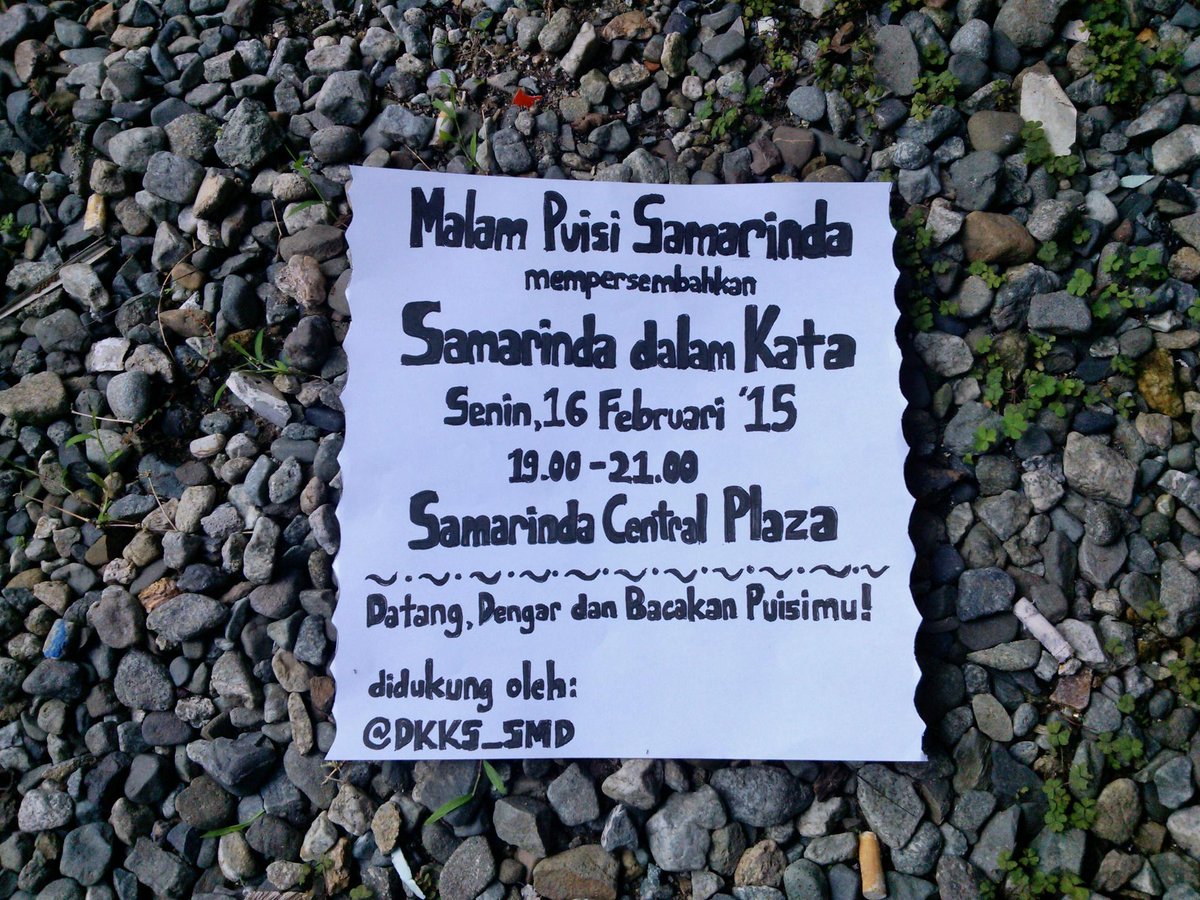 Malam Puisi Samarinda
mempersembahkan
Samarinda dalam Kata
Senin, 16 Februari '15
19.00 - 21.00
Samarinda Central Plaza
Datang, Dengar dan Bacakan Puisimu!
didukung oleh:
@DKKS_SMD